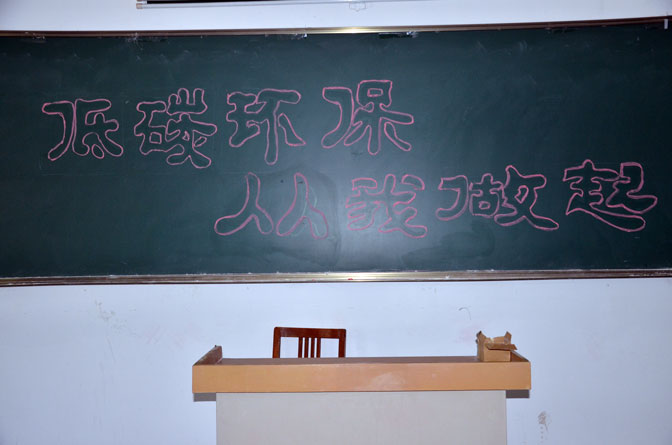 低碳环保
从我做起